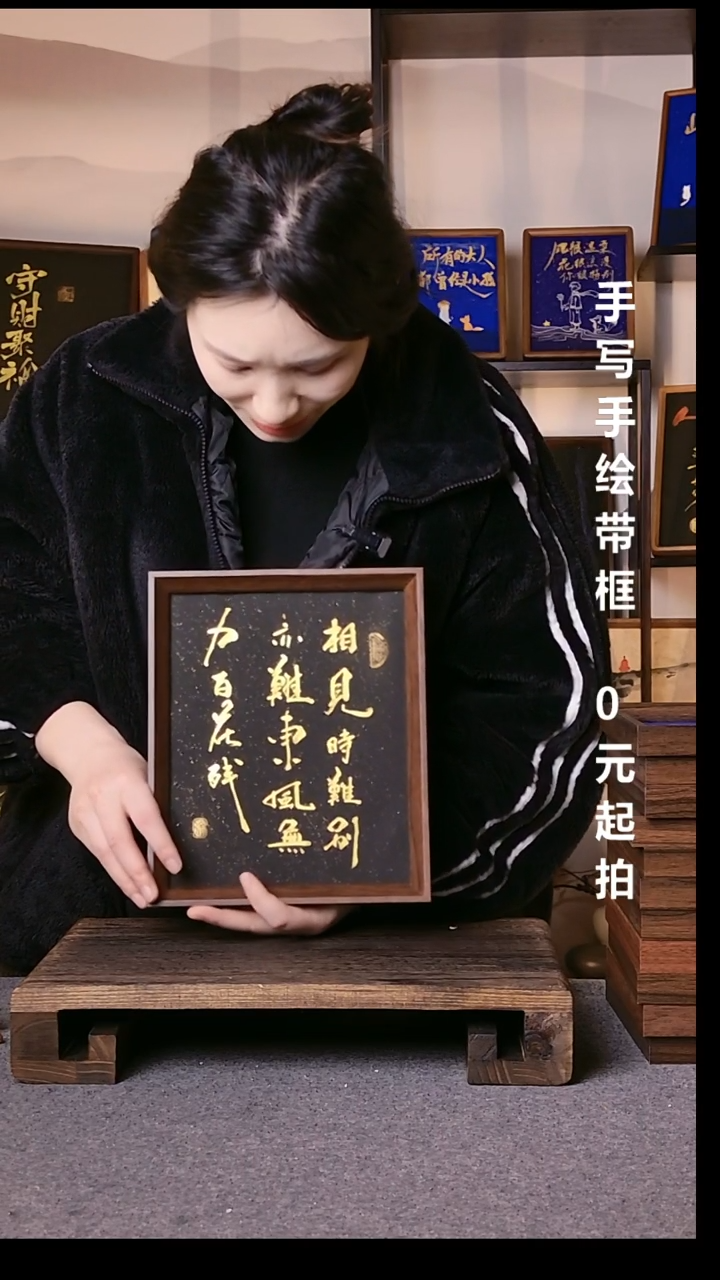 相見時難別
亦難東風無
力百花残
手写手绘带框 0元起拍
守財聚福
所有的大人
都曾经是小孩